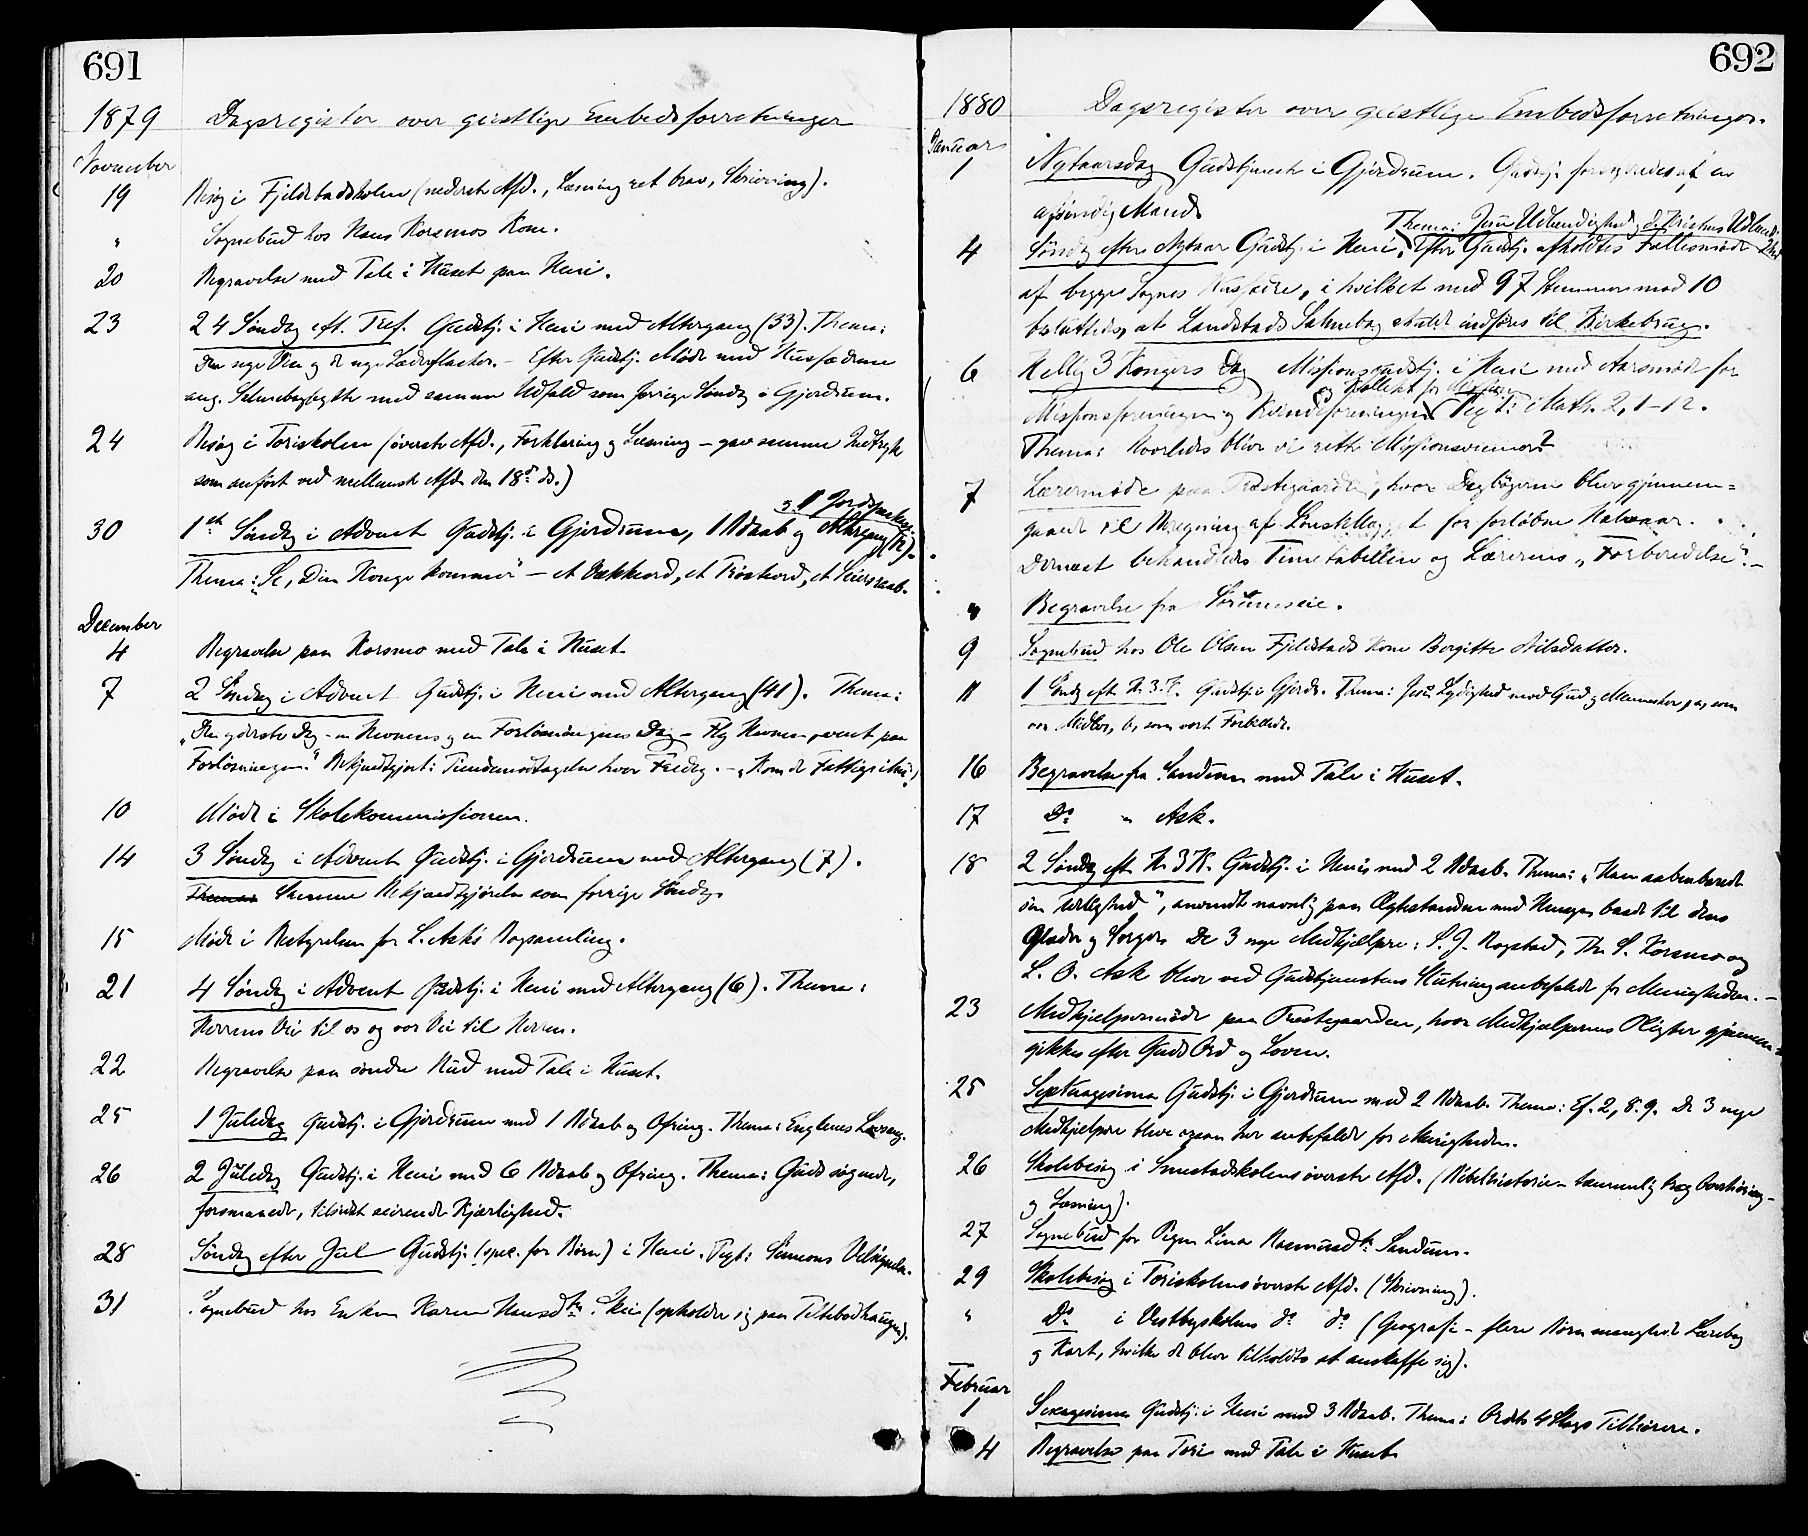 691
1879 Dagsregister over geistlige Embedsforretninger
November
19 Besøg i Fjeldstadskolen (nederste Afd., Læsning ret brav, Skrivning).
" Sognebud hos Hans Korsmos Kone.
20 Begravelse med Tale i Huset paa Heni.
23 24 Søndag eft. Tref. Gudstj. i Heni med Altergang (33). Thema:
Den nye Vin og de nye Læderflasker. – Efter Gudstj. Møde med Husfædrene
ang. Salmebogbytte med samme Udfald som forrige Søndag i Gjerdrum.
24 Besøg i Toriskolen (øverste Afd., Forklaring og Læsning – gav samme Indtryk
som anført ved mellemste Afd. den 18de ds.)
30 1ste Søndag i Advent Gudstj. i Gjerdrum, 1 Udaab og Altergang (12).
Jordspaakast.
Thema: Se, Din Konge kommer" – et Vækkeord, et Trøsteord, et Seiersraab.
December
4 Begravelse paa Korsmo med Tale i Huset
7 2 Søndag i Advent Gudstj. i Heni med Altergang (41). Thema:
„Den yderste Dag – en Hevnens og en Forløsningens Dag – Fly Hevnen, vent paa
Forløsningen." Bekjendtgjort: Tiendemodtagelse hver Fredag. – „Kom de Fattige ihu."
10 Møde i Skolekommissionen.
14 3 Søndag i Advent Gudstj. i Gjerdrum med Altergang (7).
Thema: Samme Bekjendtgjørelse som forrige Søndag.
15 Møde i Bestyrelsen for L. Asks Bogsamling.
21 4 Søndag i Advent Gudstj. i Heni med Altergang (6). Thema:
Herrens Vei til os og vor Vei til Herren.
22 Begravelse paa søndre Rud med Tale i Huset.
25 1 Juledag Gudstj. i Gjerdrum med 1 Udaab og Ofring. Thema: Englenes Lovsang.
26 2 Juledag Gudstj. i Heni med 6 Udaab og Ofring. Thema: Guds søgende,
forsmaaede, tilsidst seirende Kjærlighed.
28 Søndag efter Jul Gudstj. (spec. for Børn) i Heni. Text: Simeons Velsignelse.
31 Sognebud hos Enken Karen Hansdtr. Skei (opholder sig paa Tiltebodhaugen).
692
1880 Dagsregister over geistlige Embedsforretninger.
Januar
1 Nytaarsdag Gudstjeneste i Gjerdrum. Gudstj. forstyrredes af en
afsindig Mand
Thema: Jesu Udlændighed og de Kristnes Udlændighed
4 Søndag efter Nytaar Gudstj. i Heni. Efter Gudstj. afholdtes Fællesmøde
af begge Sognes Husfædre, i hvilket med 97 Stemmer mod 10
besluttedes, at Landstads Salmebog skulde indføres til Kirkebrug.
6 Hellig 3 Kongers Dag Missionsgudstj. i Heni med Aarsmøde for
og Kollekt for Missionen
Missionsforeningen og Kvindeforeningen. Text: Math. 2, 1–12.
Thema: Hvorledes blive vi rette Missionsvenner?
7 Lærermøde paa Præstegaarden, hvor Dagbøgerne blev gjennem=
gaaet til Beregning af Lønstillæg for forløbne Halvaar.
Dernæst behandledes Timetabellen og Lærerens „Forberedelse". –
" Begravelse fra Sørumseie.
9 Sognebud hos Ole Olsen Fjeldstads Kone Borgitte Nilsdatter.
11 1 Sønd. eft. H. 3 K. Gudstj. i Gjerdr. Thema: Jesu Lydighed mod Gud og Mennesker, a, som
vor Midler, b, som vort Forbillede.
16 Begravelse fra Sandum med Tale i Huset.
17 Do " Ask.
18 2 Søndag eft. H. 3 K. Gudstj. i Heni med 2 Udaab. Thema: „Han aabenbarede
sin Herlighed", anvendt navnlig paa Ægtestanden med Hensyn baade til dens
Glæder og Sorger. De 3 nye Medhjælpere: S. J. Rogstad, Th. S. Korsmo og
L. O. Ask blev ved Gudstjenestens Slutning anbefalede for Menigheden. –
23 Medhjælpermøde paa Præstegaarden, hvor Medhjælpernes Pligter gjennem=
gikkes efter Guds Ord og Loven.
25 Septuagesima Gudstj. i Gjerdrum med 2 Udaab. Thema: Ef. 2, 8. 9. De 3 nye
Medhjælpere bleve ogsaa her anbefalede for Menigheden.
26 Skolebesøg i Smestadskolens øverste Afd. (Bibelhistorie – temmelig svag Overhøring –
og Læsning).
27 Sognebud for Pigen Lina Rasmusdtr. Sandum.
29 Skolebesøg i Toriskolens øverste Afd. (Skrivning).
" Do i Vestbyskolens do do (Geografi – flere Børn manglede Lærebog
og Kart, hvilke de blev tilholdte at anskaffe sig).
Februar
1 Sexagesima Gudstj. i Heni med 3 Udaab. Thema: Ordets 4 Slags Tilhørere.
4 Begravelse paa Tori med Tale i Huset